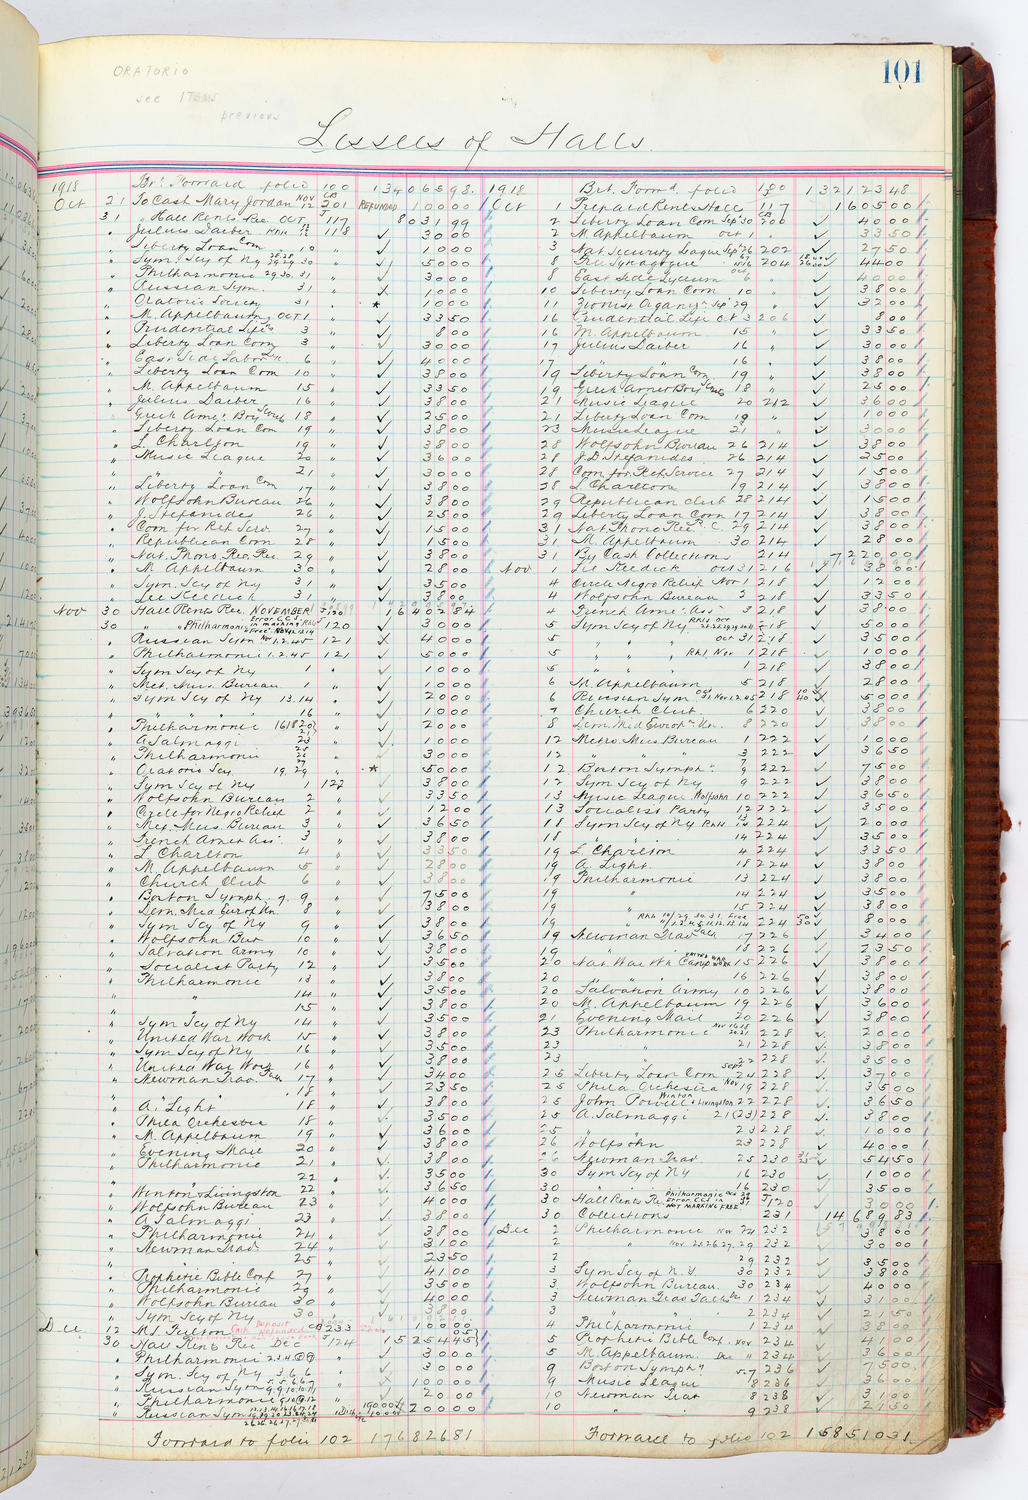 ORATORIO
see ITEMS
previous
101
Lessees of Halls.
1918 Brt Forward folio 100 13406598.
Oct 21 To Cash Mary Jordan Nov 12 201 REFUNDED 10000
31 " Hall Rents Rec Oct. 117 803199
Julius Daiber 118 3000
Liberty Loan Com 10 " 1000
Sym. Scy of Ny 29 30 " 5000
Philharmonic 29.30.31 " 3000
Russian Sym. 31 " 1000
Oratorio Society 31 " * 1000
M. Appelbaum, Oct 1 " 3350
Prudential Life 3 " 800
Liberty Loan Com 3 " 3000
East Side Labor 6 " 4000
Liberty Loan Com 10 " 3800
M. Appelbaum 15 " 3350
Julius Daiber 16 " 3800
Greek Amer Boy Scouts 18 " 2500
Liberty Loan Com 19 " 3800
L. Charlton 19 " 3800
Music League 20 " 3600
" " 21 " 3000
Liberty Loan Com 17 " 3800
Wolfsohn Bureau 26 " 3800
J. Stefanides 26 " 2500
Com for Ref Serv. 27 " 1500
Republican Com 28 " 1500
Nat. Phono. Rec. Rec. 29 " 3800
M. Appelbaum 30 " 2800
Sym. Scy of Ny 31 " 3500
Lee Keedick 31 " 3800
Nov 30 Hall Rents Rec. NOVEMBER 120 1640284
30 " Philharmonic Error C.C.S. in marking "Free" 120 3000
Russian Sym Nov 1.2.4.5 121 4000
Philharmonic 1.2.4.5 121 5000
Sym Scy of Ny 1 " 1000
Met. Mus. Bureau 1 " 1000
Sym Scy of Ny 13.14 " 2000
" " 16 " 1000
Philharmonic 16 18 20 21 " 2000
A Salmaggi 23 " 1000
Philharmonic " 3000
Oratorio Scy. 19. 29 " * 5000
Sym Scy of Ny 1 122 3800
Wolfsohn Bureau 2 " 3350
Circle for Negro Relief 2 " 1200
Met. Mus. Bureau 3 " 3650
French Amer Ass. 3 " 3800
L Charlton 4 " 3350
M. Appelbaum 5 " 2800
Church Club 6 " 3800
Boston Symph. 7. 9 " 7500
Dem. Mid Europ Un. 8 " 3800
Sym Scy of Ny 9 " 3800
Wolfsohn Bur 10 " 3650
Salvation Army 10 " 3800
Socialist Party 12 " 3500
Philharmonic 13 " 3800
" 14 " 3500
" 15 " 3800
Sym Scy of Ny 14 " 3500
United War Work 15 " 3800
Sym Scy of Ny 16 " 3500
United War Work 16 " 3800
Newman Trav. Talk 17 " 3400
" 18 " 2350
A. Light 18 " 3800
Phila Orchestra 18 " 3500
M. Appelbaum 19 " 3600
Evening Mail 20 " 3800
Philharmonic 21 " 3800
" 22 " 3500
Winton & Livingston 22 " 3650
Wolfsohn Bureau 23 " 4000
A Salmaggi 23 " 3800
Philharmonic 24 " 3800
Newman Trav. 24 " 3100
" 25 " 2350
Prophetic Bible Conf 27 " 4100
Philharmonic 29 " 3500
Wolfsohn Bureau 30 " 4000
Sym Scy of Ny 30 " 3800
Dec 12 M. Fulton Cash Deposit Refunded 233 1000
30 Hall Rents Rec Dec 124 1525445
Philharmonic " 3000
Sym. Scy of Ny " 3000
Russian Sym " 10000
Philharmonic " 2000
Russian Sym 20000
Forward to folio 102 17682681
1918 Brt. Forwd. folio 100 13212348
Oct 1 Prepaid Rents Hall 117 160500
2 Liberty Loan Com Sep 30 200 4000
2 M. Appelbaum Oct 1 " 3350
3 Nat. Security League Sep 26 202 2750
8 Free Synagogue 204 4400
8 East Side Lyceum Oct 6 " 4000
10 Liberty Loan Com 10 " 3800
11 Zionist Organ. Sep 29 " 3200
16 Prudential Life Oct 3 206 800
16 M. Appelbaum 15 " 3350
17 Julius Daiber 16 " 3000
17 " " 16 " 3800
19 Liberty Loan Com 19 " 3800
19 Greek Amer Boy Scouts 18 " 2500
21 Music League 20 212 3600
21 Liberty Loan Com 19 " 1000
23 Music League 21 " 3000
28 Wolfsohn Bureau 26 214 3800
28 J. D. Stefanides 26 214 2500
28 Com for Ref Service 27 214 1500
28 L Charlton 19 214 3800
29 Republican Club 28 214 1500
29 Liberty Loan Com 17 214 3800
31 Nat. Phono Rec. C. 29 214 3800
31 M. Appelbaum 30 214 2800
31 By Cash Collections 214 722000
Nov 1 Lee Keedick Oct 31 216 3800
4 Circle Negro Relief Nov 1 218 1200
4 Wolfsohn Bureau 2 218 3800
4 French Amer. Ass. 3 218 3800
5 Sym Scy of Ny. 218 5000
5 " " " Oct 31 218 3500
5 " " " RH, Nov 1 218 1000
5 " " " 1 218 3800
6 M. Appelbaum 5 218 2800
6 Russian Sym Oct 31, Nov 1,2,4,5 218 5000
7 Church Club 6 220 3800
8 Dem Mid Europ Un. 8 220 3800
12 Metro. Mus Bureau 1 222 1000
12 " " 3 222 3650
12 Boston Symph. 7 9 222 7500
12 Sym Scy of Ny 9 222 3800
13 Music League Wolfsohn 10 222 3650
13 Socialist Party 12 222 3500
18 Sym Scy of Ny 13 14 224 2000
18 " " 14 224 3500
19 L. Charlton 4 224 3350
19 A. Light 18 224 3800
19 Philharmonic 13 224 3800
19 " 14 224 3500
19 " 15 224 3800
19 " 224 8000
19 Newman Trav Talk 17 226 3400
19 " 18 226 2350
20 Nat. War Wk Camp UNITED WAR WORK 15 226 3800
20 " " 16 226 3800
20 Salvation Army 10 226 3800
20 M. Appelbaum 19 226 3600
21 Evening Mail 20 226 3800
23 Philharmonic Nov 16.18 20.21 228 2000
23 " 21 228 3800
23 " 22 228 3500
25 Liberty Loan Com Sept 24 228 3700
25 Phila. Orchestra Nov 19 228 3500
25 John Powell Winton & Livingston 22 228 3650
25 A. Salmaggi 21 (23) 228 3800
25 " 23 228 1000
26 Wolfsohn 23 228 4000
26 Newman Trav. 25 230 5450
30 Sym Scy of Ny 16 230 1000
30 " " 16 230 3500
30 Hall Rents Rec Philharmonic Oct 30 31 Error C.C.S. in NOT MARKING FREE 120 3000
30 Collections 231 1468983
Dec 2 Philharmonic Nov 24 232 3800
2 " Nov 25 26.27.29 232 3000
2 " 29 232 3500
3 Sym Scy of N.Y. 30 232 3800
3 Wolfsohn Bureau 30 234 4000
3 Newman Trav Talk Dec 1 234 3100
3 " " 2 234 2150
4 Philharmonic 1 234 3800
5 Prophetic Bible Conf. Nov 234 4100
5 M. Appelbaum. Dec " 234 3600
9 Boston Symphy 5-7 236 7500
9 Music League 8 236 3600
10 Newman Trav 8 238 3100
10 " 9 238 2150
Forward to folio 102 15851031